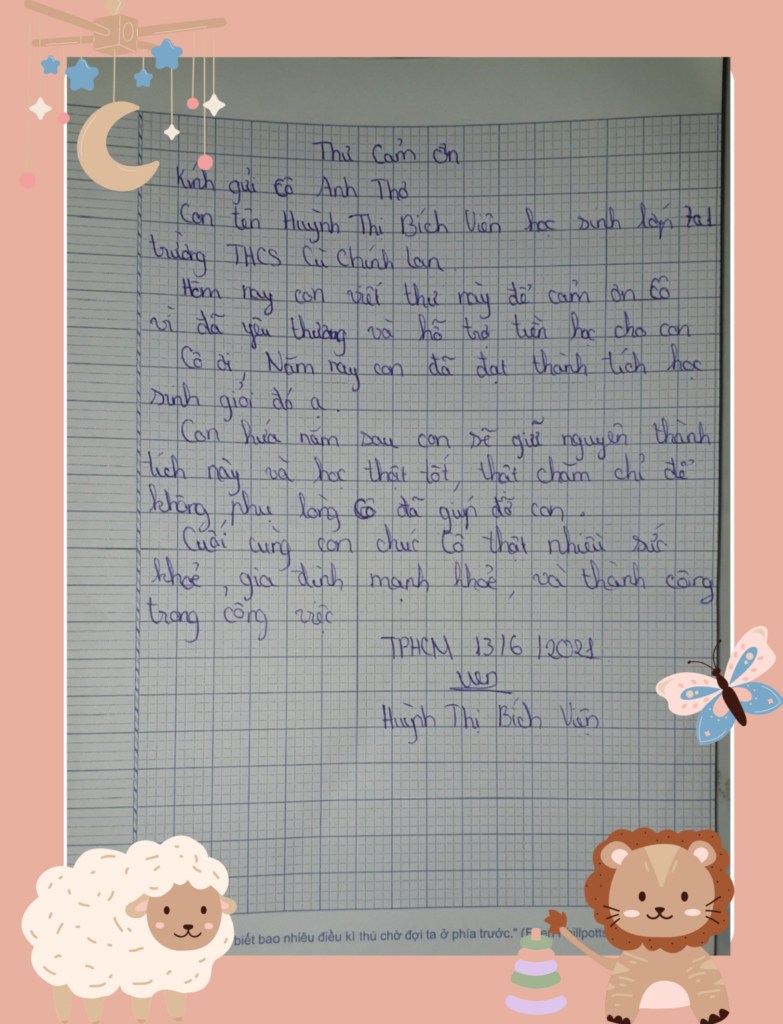 Thư Cảm ơn
Kính gửi Cô Anh Thơ
Con tên Huỳnh Thị Bích Viên học sinh lớp 7a1
trường THCS Cù Chính Lan
Hôm nay con viết thư này để cảm ơn Cô
vì đã yêu thương và hỗ trợ tiền học cho con
Cô ơi, Năm nay con đã đạt thành tích học
sinh giỏi đó ạ.
Con hứa năm sau con sẽ giữ nguyên thành
tích này và học thật tốt, thật chăm chỉ để
không phụ lòng Cô đã giúp đỡ con.
Cuối cùng con chúc Cô thật nhiều sức
khoẻ, gia đình mạnh khoẻ, và thành công
trong công việc
TPHCM 13/6/2021
Viên
Huỳnh Thị Bích Viên
biết bao nhiêu điều kì thú chờ đợi ta ở phía trước." (